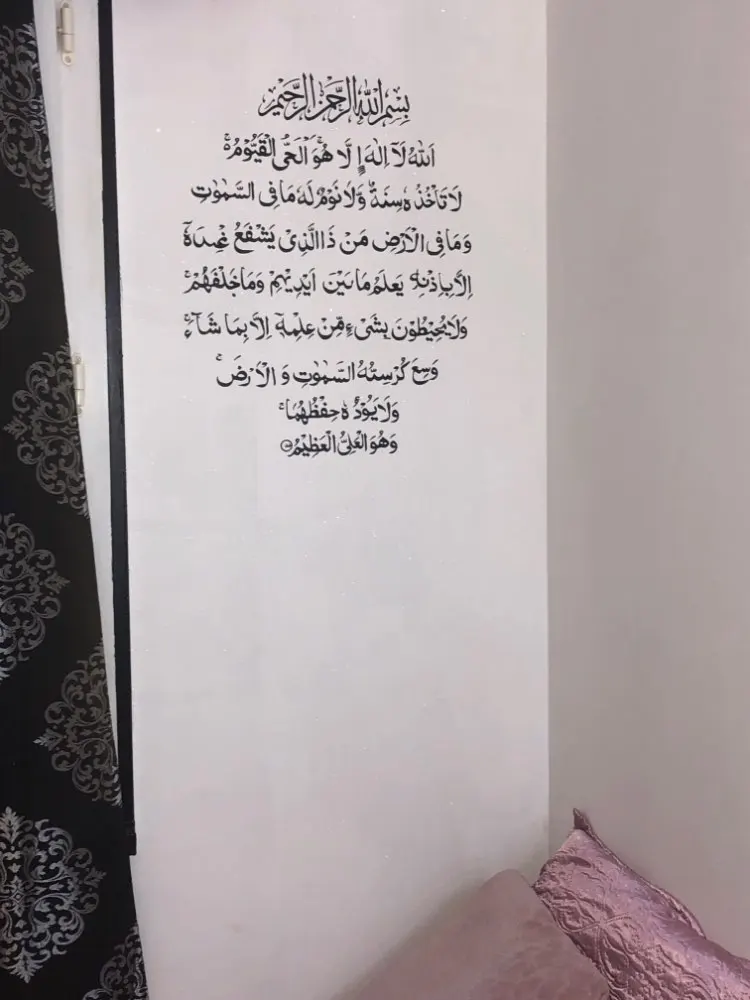 بِسْمِ اللهِ الرَّحْمٰنِ الرَّحِيْمِ
اَللهُ لَآ اِلٰهَ اِلَّا هُوَۚ اَلْحَىُّ الْقَيُّوْمُ ۚ
لَا تَاْخُذُهٗ سِنَةٌ وَّلَا نَوْمٌ لَهٗ مَا فِى السَّمٰوٰتِ
وَمَا فِى الْاَرْضِ مَنْ ذَا الَّذِىْ يَشْفَعُ عِنْدَهٗٓ
اِلَّا بِاِذْنِهٖ يَعْلَمُ مَا بَيْنَ اَيْدِيْهِمْ وَمَا خَلْفَهُمْ ۚ
وَلَا يُحِيْطُوْنَ بِشَىْءٍ مِّنْ عِلْمِهٖٓ اِلَّا بِمَا شَآءَ ۚ
وَسِعَ كُرْسِيُّهُ السَّمٰوٰتِ وَ الْاَرْضَ ۚ
وَلَا يَؤُدُهٗ حِفْظُهُمَا ۚ
وَهُوَ الْعَلِىُّ الْعَظِيْمُ